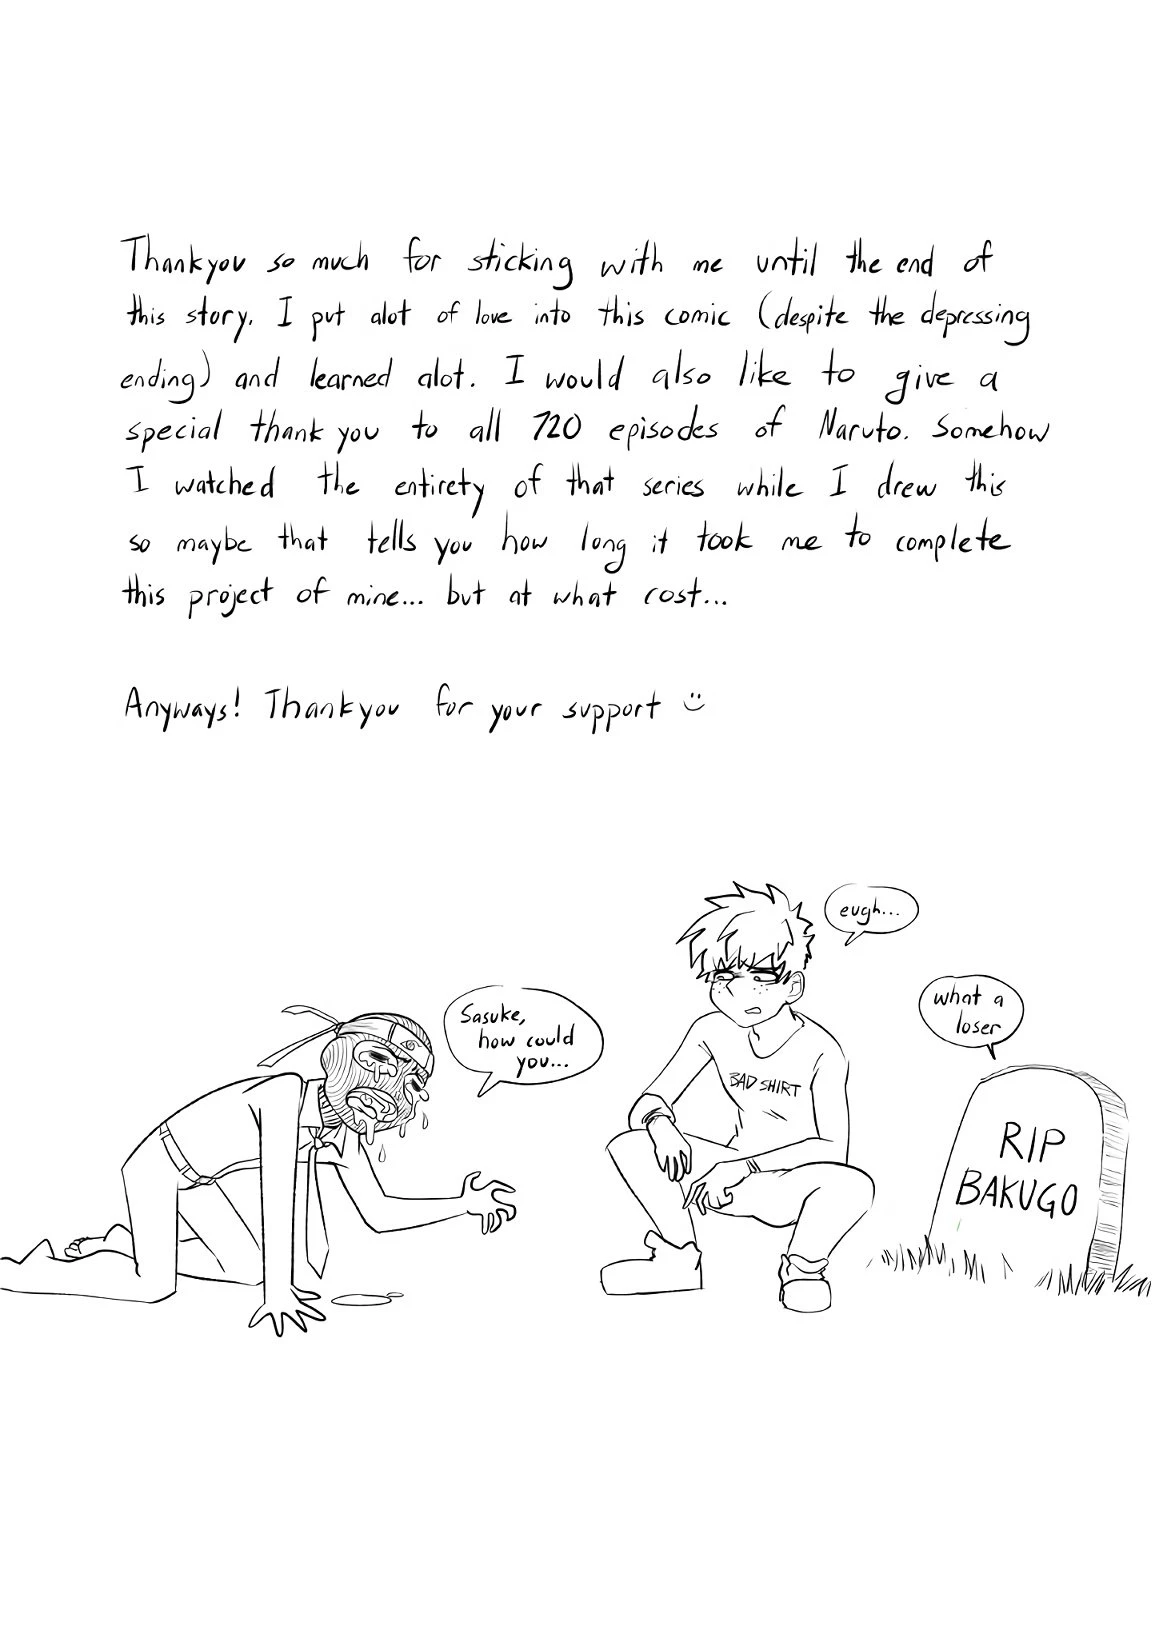 Thankyou so much for sticking with me until the end of
this story. I put alot of love into this comic (despite the depressing
ending) and learned alot. I would also like to give a
special thank you to all 720 episodes of Naruto. Somehow
I watched the entirety of that series while I drew this
so maybe that tells you how long it took me to complete
this project of mine... but at what cost...
Anyways! Thankyou for your support :)
eugh...
Sasuke,
how could
you...
what a
loser
BAD SHIRT
RIP
BAKUGO